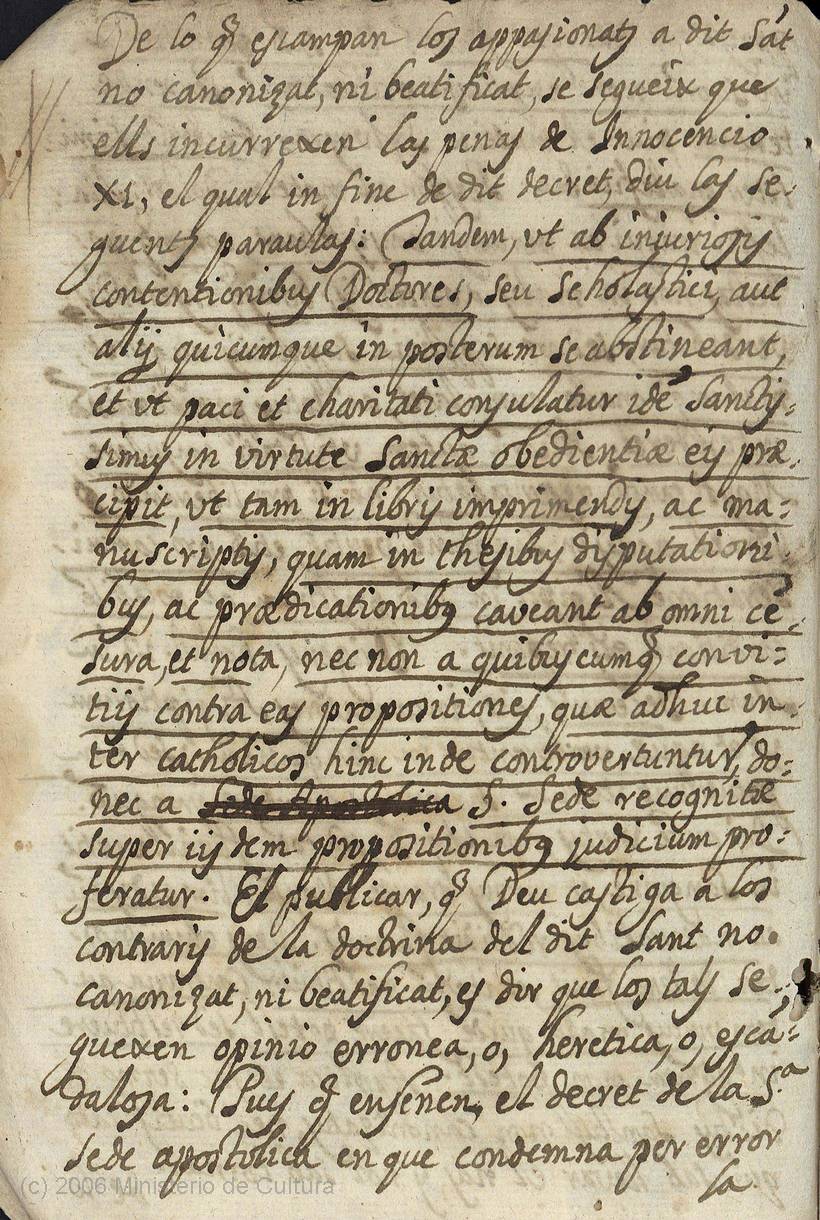 De lo q̃ escampan los appasionats a dit Sāt
no canonizat, ni beatificat, se segueix que
ells incurrexen las penas de Innocencio
XI, el qual in fine de dit decret, diu las se-
guents paraulas: Tandem, vt ab iniuriosis
contentionibus Doctores, seu scholastici, aut
alij quicumque in posterum se abstineant,
et vt paci et charitati consulatur idē Sanctis-
simus in virtute Sanctæ obedientiæ eis præ-
cipit, vt tam in libris imprimendis, ac ma-
nuscriptis, quam in thesibus disputationi-
bus, ac prædicationibꝯ caveant ab omni cē-
sura, et nota, nec non a quibuscumq̃ convi-
tiis contra eas propositiones, quæ adhuc in-
ter catholicos hinc inde controvertuntur, do-
nec a Sede Apostolica S. Sede recognitæ
super iisdem propositionibꝯ judicium pro-
feratur. El publicar, q̃ Deu castiga a los
contraris de la doctrina del dit Sant no
canonizat, ni beatificat, es dir que los tals se-
guexen opinio erronea, o, heretica, o, escā-
dalosa: Puys q̃ ensenen, el decret de la S.ª
sede apostolica en que condemna per error
la
(c) 2006 Ministerio de Cultura